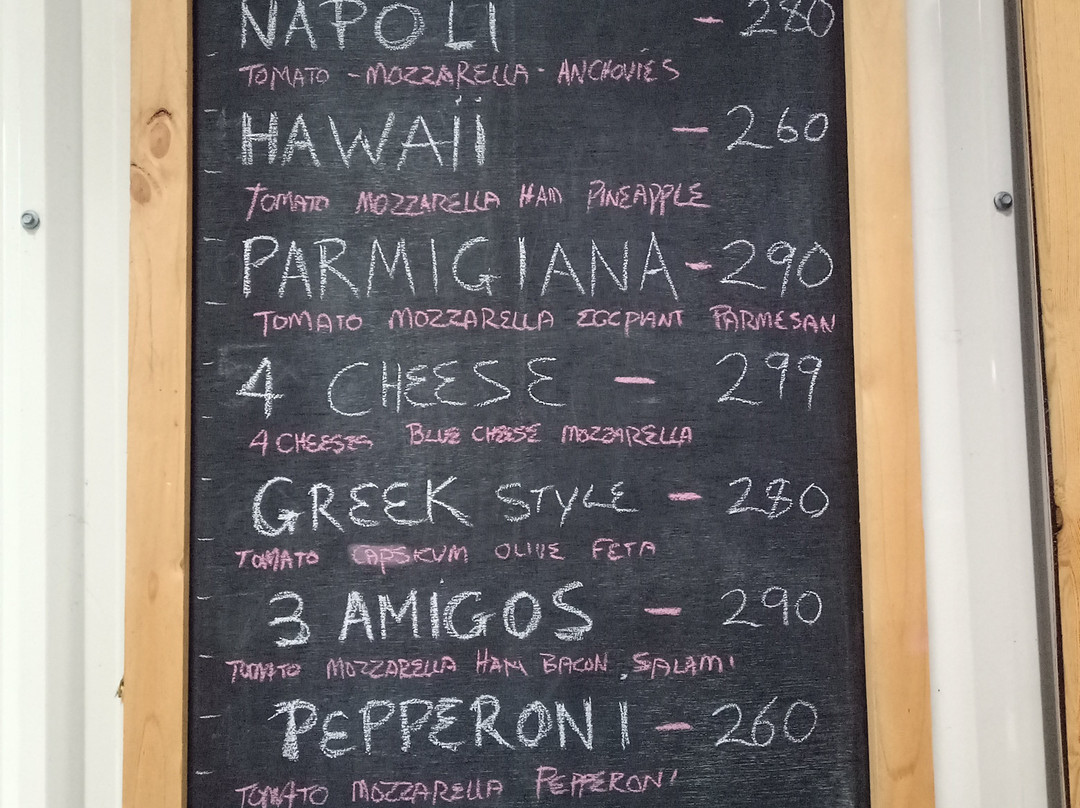 NAPOLI - 280
TOMATO - MOZZARELLA - ANCHOVIES
HAWAII - 260
TOMATO MOZZARELLA HAM PINEAPPLE
PARMIGIANA - 290
TOMATO MOZZARELLA EGGPLANT PARMESAN
4 CHEESE - 299
4 CHEESES BLUE CHEESE MOZZARELLA
GREEK STYLE - 280
TOMATO CAPSICUM OLIVE FETA
3 AMIGOS - 290
TOMATO MOZZARELLA HAM BACON, SALAMI
PEPPERONI - 260
TOMATO MOZZARELLA PEPPERONI